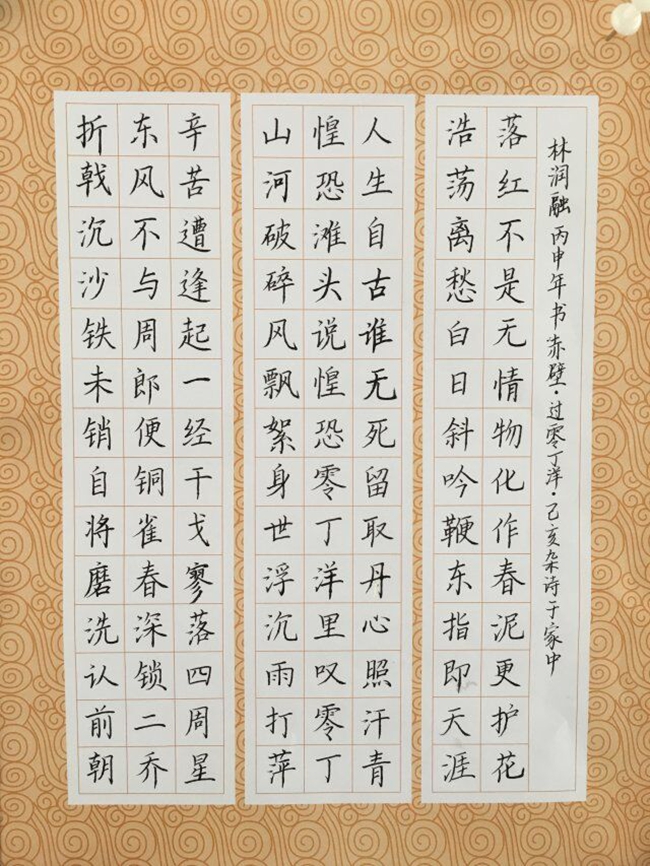 折戟沉沙铁未销自将磨洗认前朝
东风不与周郎便铜雀春深锁二乔
辛苦遭逢起一经干戈寥落四周星
山河破碎风飘絮身世浮沉雨打萍
惶恐滩头说惶恐零丁洋里叹零丁
人生自古谁无死留取丹心照汗青
浩荡离愁白日斜吟鞭东指即天涯
落红不是无情物化作春泥更护花
林润融 丙申年书赤壁·过零丁洋·乙亥杂诗于家中